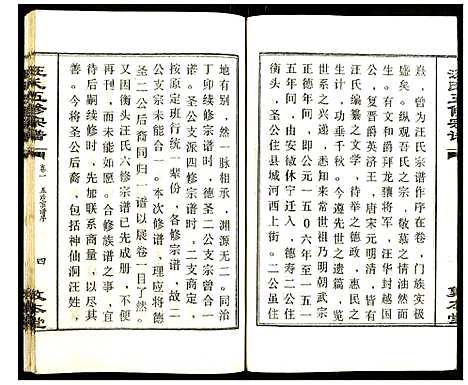 熹，曾为汪氏宗谱作序在卷，门族实极
盛矣。纵观吾氏之宗，敬慕之情油然而
生。文和公爵拜龙骧将军，汪华封越国
公，复晋爵英济王，唐宋元明清，皆有
汪氏编纂之文学，待举之德政，惠民之
生计，功垂千秋。今遵先世之遗篇，览
近史而集考：我之世祖乃明朝武宗正
德年间，即公元一五〇六年至一五二
五年间，由安徽休宁迁入，德寿二公住
城，圣公住县城河西上街。二公虽住
地有别，然一脉相承，渊源无二。同治
丁卯续修宗谱时，德圣二公支宗曾合
谱。圣公支派四修宗谱时，二支商定，
按原定班行统一辈份，各修宗谱，故二
公支宗未能合一。本次修谱，理应将德
圣二公后裔同归一谱以展卷一目了然。
又因衡头汪氏六修宗谱已先成册，不便
再增刊，而未能如愿。合修族谱之事，宜
待后嗣续修时，先加联系商量，以尽其
善。今将圣公后裔，包括神仙洞汪姓，
汪氏五修宗谱
卷一
五修宗谱序
四
敦本堂